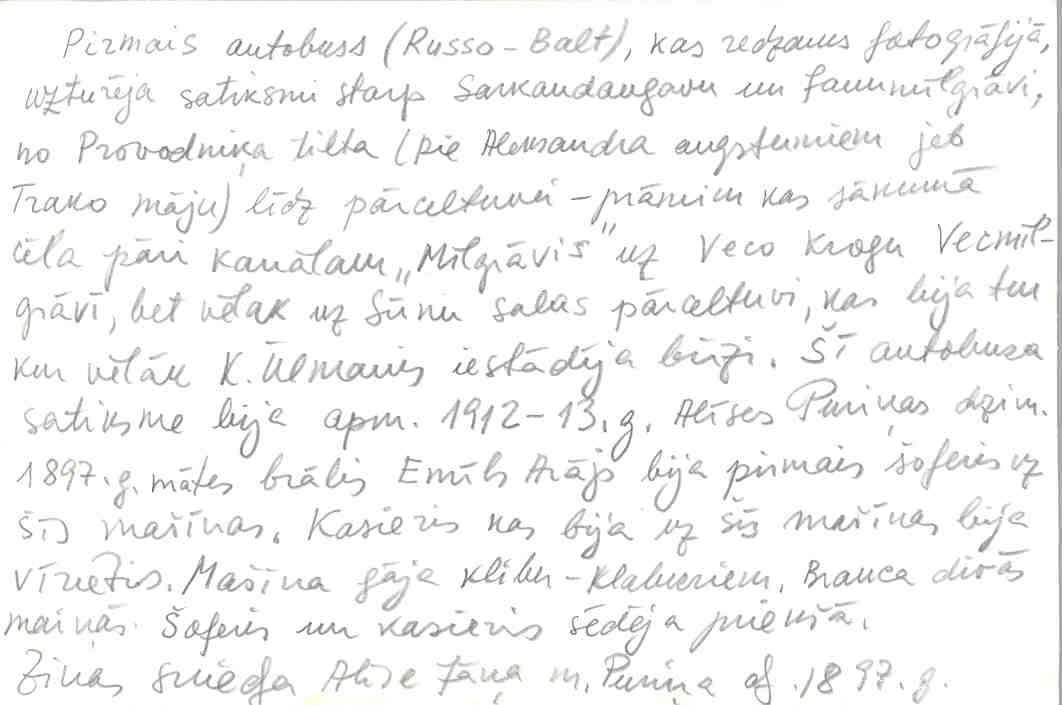 Pirmais autobuss (Russo-Balt), kas redzams fotogrāfijā,
uzturēja satiksmi starp Sarkandaugavu un Jaunmīlgrāvi,
no Provodniķa tilta (pie Aleksandra augstumiem jeb
Trako māju) līdz pārceltuvei - prāmim kas sākumā
cēla pāri kanālam „Mīlgrāvis" uz Veco krogu Vecmīl-
grāvī, bet vēlāk uz Sūnu salas pārceltuvi, kas bija tur
kur vēlāk K. Ulmanis iestādīja birzi. Šī autobusa
satiksme bija apm. 1912-13. g. Alīses Puriņas dzim.
1897. g. mātes brālis Emīls Arājs bija pirmais šoferis uz
šīs mašīnas. Kasieris kas bija uz šīs mašīnas bija
vīrietis. Mašīna gāja klibu-klaburiem. Brauca divās
maiņās. Šoferis un kasieris sēdēja priekšā.
Ziņas sniedza Alīse m. Puriņa 1897. g.